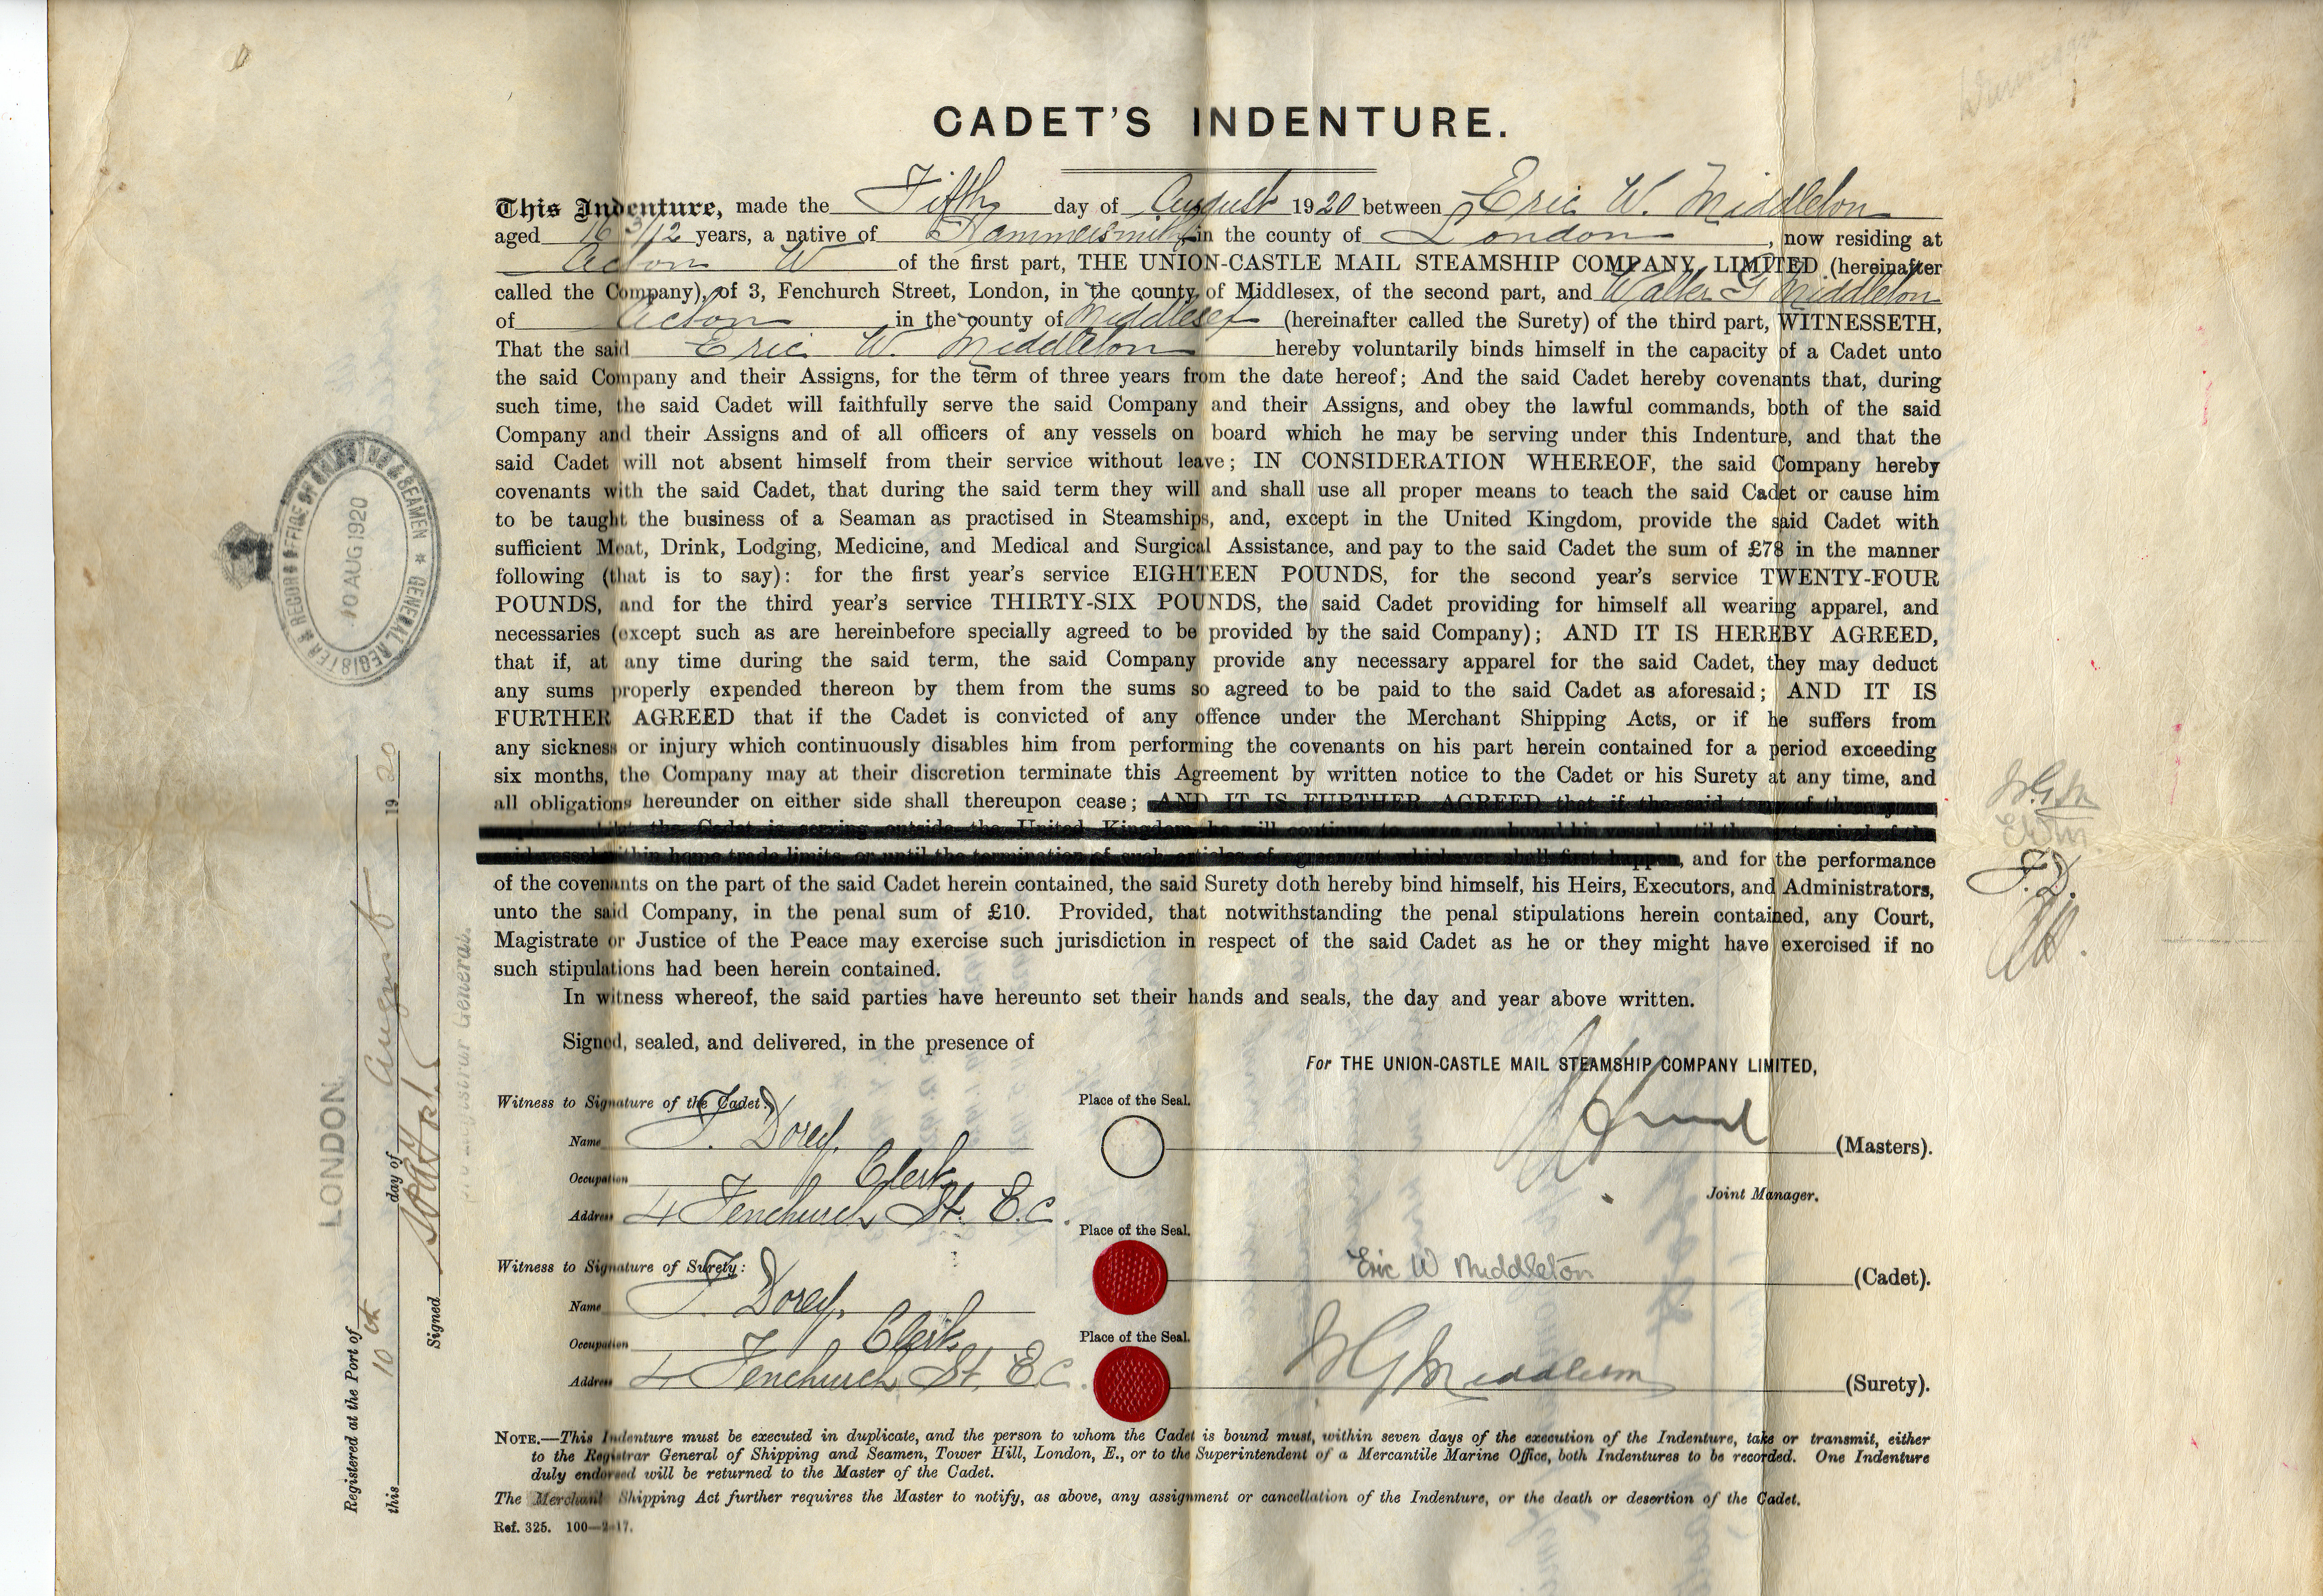 CADET'S INDENTURE.
This Indenture, made the Fifth day of August 1920 between Eric W. Middleton
aged 16 3/12 years, a native of Hammersmith in the county of London, now residing at
Acton W of the first part, THE UNION-CASTLE MAIL STEAMSHIP COMPANY, LIMITED (hereinafter
called the Company), of 3, Fenchurch Street, London, in the county of Middlesex, of the second part, and Walter G Middleton
of Acton in the county of Middlesex (hereinafter called the Surety) of the third part, WITNESSETH,
That the said Eric W. Middleton hereby voluntarily binds himself in the capacity of a Cadet unto
the said Company and their Assigns, for the term of three years from the date hereof; And the said Cadet hereby covenants that, during
such time, the said Cadet will faithfully serve the said Company and their Assigns, and obey the lawful commands, both of the said
Company and their Assigns and of all officers of any vessels on board which he may be serving under this Indenture, and that the
said Cadet will not absent himself from their service without leave; IN CONSIDERATION WHEREOF, the said Company hereby
covenants with the said Cadet, that during the said term they will and shall use all proper means to teach the said Cadet or cause him
to be taught the business of a Seaman as practised in Steamships, and, except in the United Kingdom, provide the said Cadet with
sufficient Meat, Drink, Lodging, Medicine, and Medical and Surgical Assistance, and pay to the said Cadet the sum of £78 in the manner
following (that is to say): for the first year's service EIGHTEEN POUNDS, for the second year's service TWENTY-FOUR
POUNDS, and for the third year's service THIRTY-SIX POUNDS, the said Cadet providing for himself all wearing apparel, and
necessaries (except such as are hereinbefore specially agreed to be provided by the said Company); AND IT IS HEREBY AGREED,
that if, at any time during the said term, the said Company provide any necessary apparel for the said Cadet, they may deduct
any sums properly expended thereon by them from the sums so agreed to be paid to the said Cadet as aforesaid; AND IT IS
FURTHER AGREED that if the Cadet is convicted of any offence under the Merchant Shipping Acts, or if he suffers from
any sickness or injury which continuously disables him from performing the covenants on his part herein contained for a period exceeding
six months, the Company may at their discretion terminate this Agreement by written notice to the Cadet or his Surety at any time, and
all obligations hereunder on either side shall thereupon cease; AND IT IS FURTHER AGREED that if the said term of three years
the Cadet is serving outside the United Kingdom he will continue to serve on board his vessel until the
said vessel within home trade limits, or until the termination of such articles of agreement whichever shall first happen, and for the performance
of the covenants on the part of the said Cadet herein contained, the said Surety doth hereby bind himself, his Heirs, Executors, and Administrators,
unto the said Company, in the penal sum of £10. Provided, that notwithstanding the penal stipulations herein contained, any Court,
Magistrate or Justice of the Peace may exercise such jurisdiction in respect of the said Cadet as he or they might have exercised if no
such stipulations had been herein contained.
In witness whereof, the said parties have hereunto set their hands and seals, the day and year above written.
Signed, sealed, and delivered, in the presence of
For THE UNION-CASTLE MAIL STEAMSHIP COMPANY LIMITED,
Witness to Signature of the Cadet:
Place of the Seal.
Name T. Dorey.
(Masters).
Occupation Clerk
Joint Manager.
Address 4 Fenchurch St. E.C.
Place of the Seal.
Witness to Signature of Surety:
Eric W Middleton (Cadet).
Name T. Dorey.
Occupation Clerk
Place of the Seal.
Address 4 Fenchurch St. E.C.
W G Middleton (Surety).
NOTE.—This Indenture must be executed in duplicate, and the person to whom the Cadet is bound must, within seven days of the execution of the Indenture, take or transmit, either
to the Registrar General of Shipping and Seamen, Tower Hill, London, E., or to the Superintendent of a Mercantile Marine Office, both Indentures to be recorded. One Indenture
duly endorsed will be returned to the Master of the Cadet.
The Merchant Shipping Act further requires the Master to notify, as above, any assignment or cancellation of the Indenture, or the death or desertion of the Cadet.
Ref. 325. 100—2-17.
REGISTER & RECORD OFFICE OF SHIPPING & SEAMEN * GENERAL
10 AUG 1920
LONDON
Registered at the Port of
this 10th day of August 1920
Signed
Registrar General.
W G M
E W M
T. D.